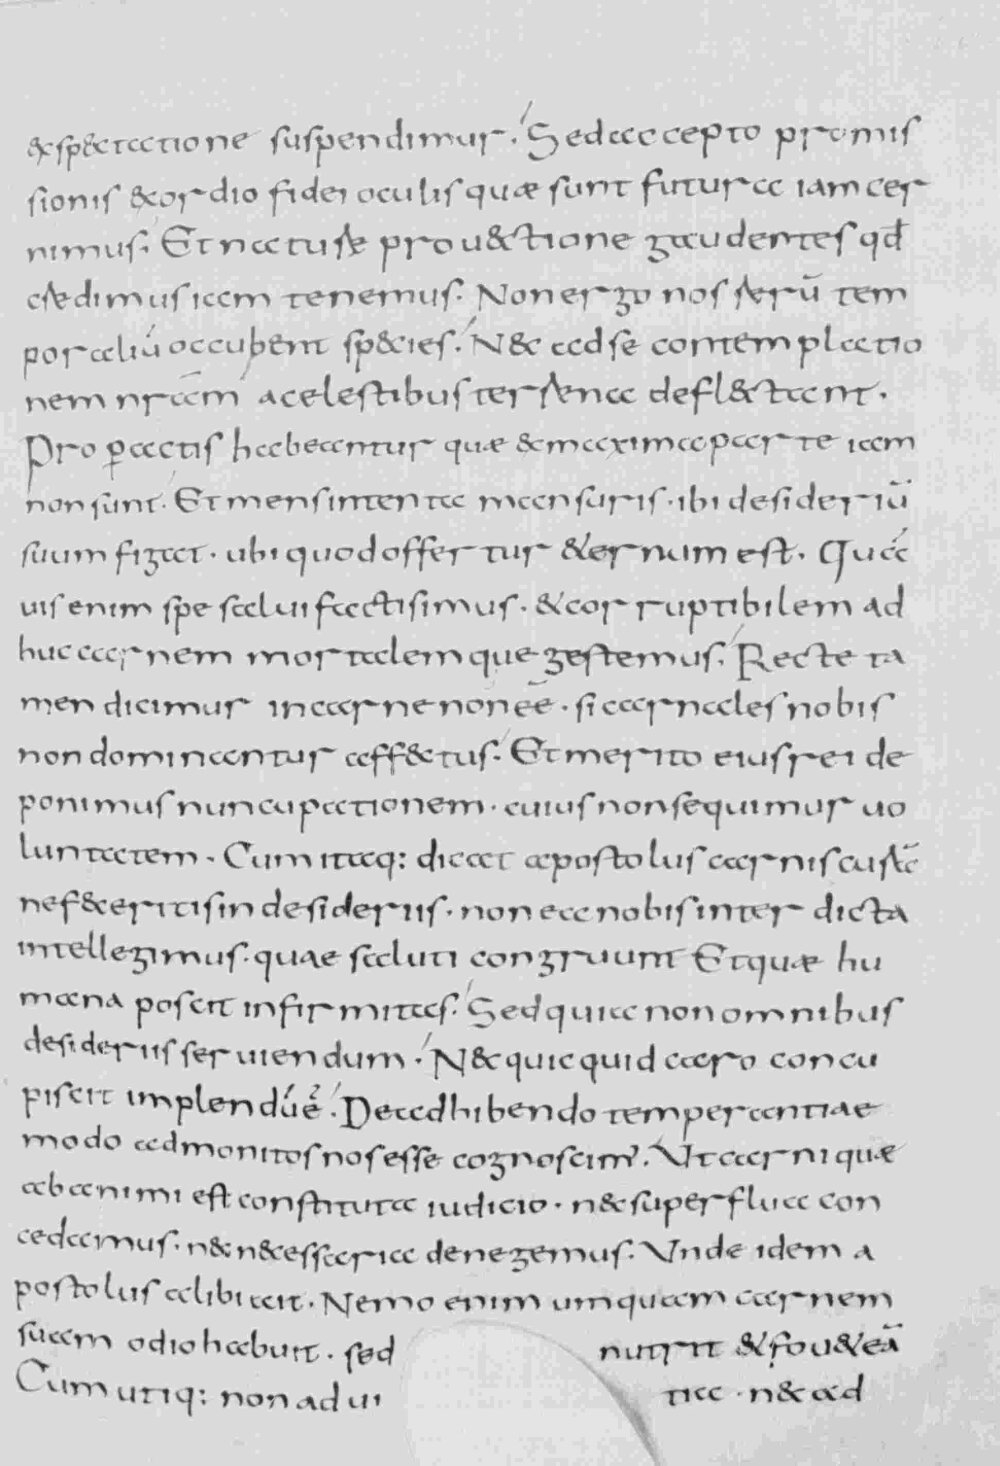 &sp&ctatione suspendimur. Sed accepto promis
sionis &ordio fidei oculis quæ sunt futura iam cer
nimus. Et naturæ prou&ctione gaudentes qđ
credimus iam tenemus. Non ergo nos rerū tem
poraliū occupent sp&ies. N& ad se contemplatio
nem nrām a celestibus terrena defl&tant.
Pro ꝑactis habeantur quæ & maxima parte iam
non sunt. Et mens intenta mansuris. ibi desideriū
suum figat. ubi quod offertur &ernum est. Quā
uis enim spe salui facti simus. & corruptibilem ad
huc carnem mortalemque gestemus. Recte ta
men dicimur in carne non eē. si carnales nobis
non dominantur aff&tus. Et merito eius rei de
ponimus nuncupationem. cuius non sequimur uo
luntatem. Cum itaq: dicat apostolus carnis curā
ne f&eritis in desideriis. non ea nobis interdicta
intellegimus. quae saluti congruunt Et quæ hu
mana poscit infirmitas. Sed quia non omnibus
desideriis seruiendum. N& quicquid caro concu
piscit implendū ē. De adhibendo temperantiae
modo admonitos nos esse cognoscim'. Vt carni quæ
ab animi est constituta iudicio. n& superflua con
cedamus. n& n&essaria denegemus. Vnde idem a
postolus alibi ait. Nemo enim umquam carnem
suam odio habuit. sed nutrit & fou& eā
Cum utiq: non ad ui tia. n& ad